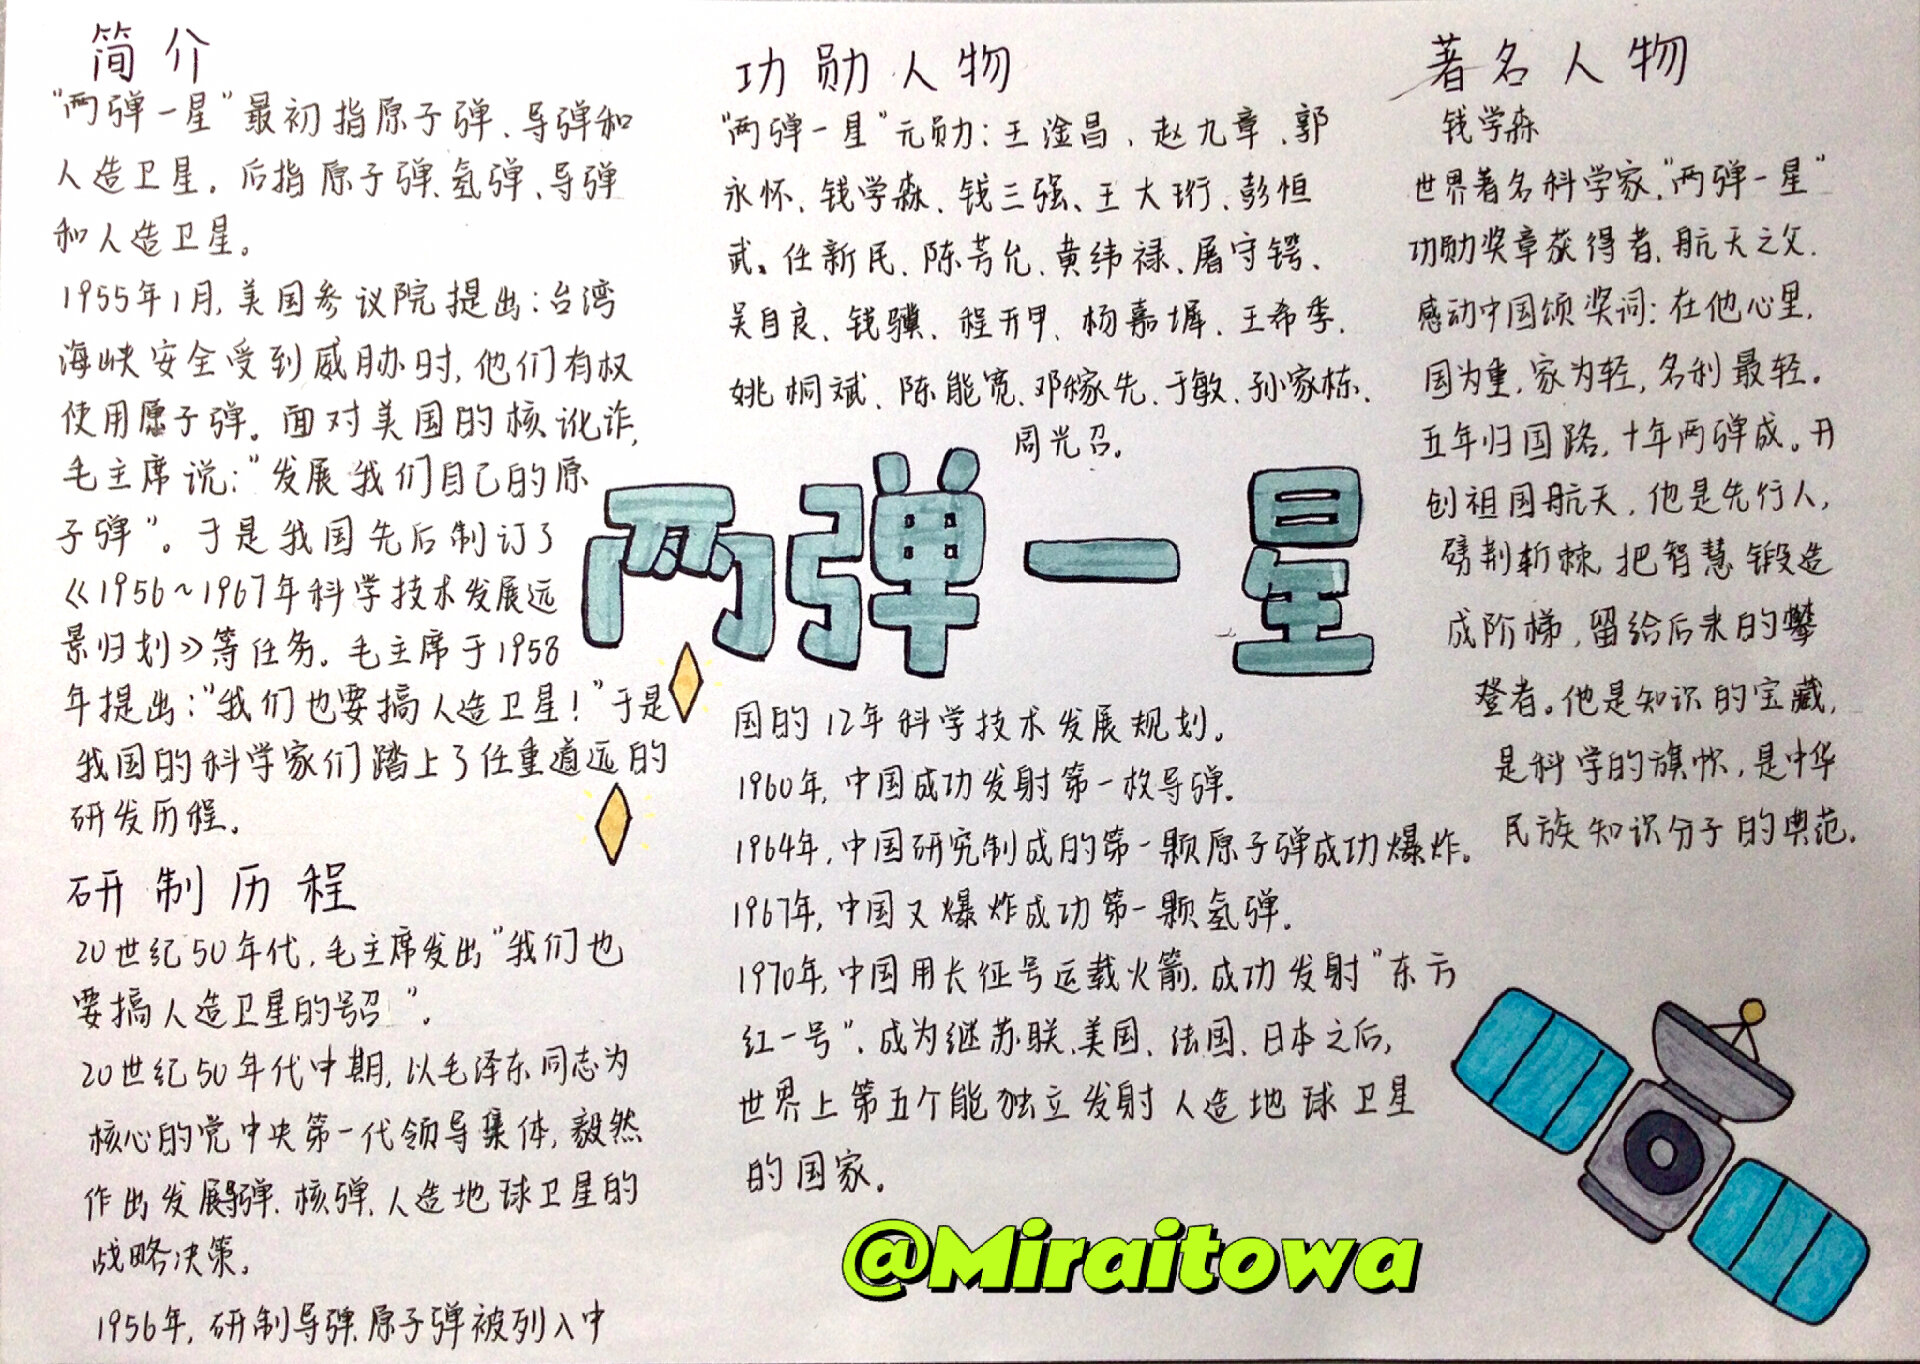 简介
"两弹一星"最初指原子弹、导弹和
人造卫星。后指原子弹、氢弹、导弹
和人造卫星。
1955年1月,美国参议院提出:台湾
海峡安全受到威胁时,他们有权
使用原子弹。面对美国的核讹诈,
毛主席说:"发展我们自己的原
子弹"。于是我国先后制订了
《1956~1967年科学技术发展远
景归划》等任务。毛主席于1958
年提出:"我们也要搞人造卫星!"于是
我国的科学家们踏上了任重道远的
研发历程。
研制历程
20世纪50年代,毛主席发出"我们也
要搞人造卫星的号召"。
20世纪50年代中期,以毛泽东同志为
核心的党中央第一代领导集体,毅然
作出发展导弹、核弹、人造地球卫星的
战略决策。
1956年,研制导弹、原子弹被列入中
功勋人物
"两弹一星"元勋:王淦昌、赵九章、郭
永怀、钱学森、钱三强、王大珩、彭恒
武、任新民、陈芳允、黄纬禄、屠守锷、
吴自良、钱骥、程开甲、杨嘉墀、王希季、
姚桐斌、陈能宽、邓稼先、于敏、孙家栋、
周光召。
两弹一星
国的12年科学技术发展规划。
1960年,中国成功发射第一枚导弹。
1964年,中国研究制成的第一颗原子弹成功爆炸。
1967年,中国又爆炸成功第一颗氢弹。
1970年,中国用长征号运载火箭,成功发射"东方
红一号",成为继苏联、美国、法国、日本之后,
世界上第五个能独立发射人造地球卫星
的国家。
著名人物
钱学森
世界著名科学家,"两弹一星"
功勋奖章获得者,航天之父.
感动中国颂奖词:在他心里,
国为重,家为轻,名利最轻。
五年归国路,十年两弹成。开
创祖国航天,他是先行人,
劈荆斩棘,把智慧锻造
成阶梯,留给后来的攀
登者。他是知识的宝藏,
是科学的旗帜,是中华
民族知识分子的典范。
@Miraitowa